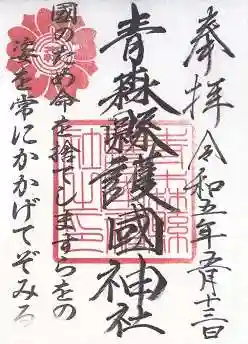 奉拝
令和五年五月十三日
青森縣護國神社
國のため命を捨てしますらをの
姿を常にかかげてぞみる